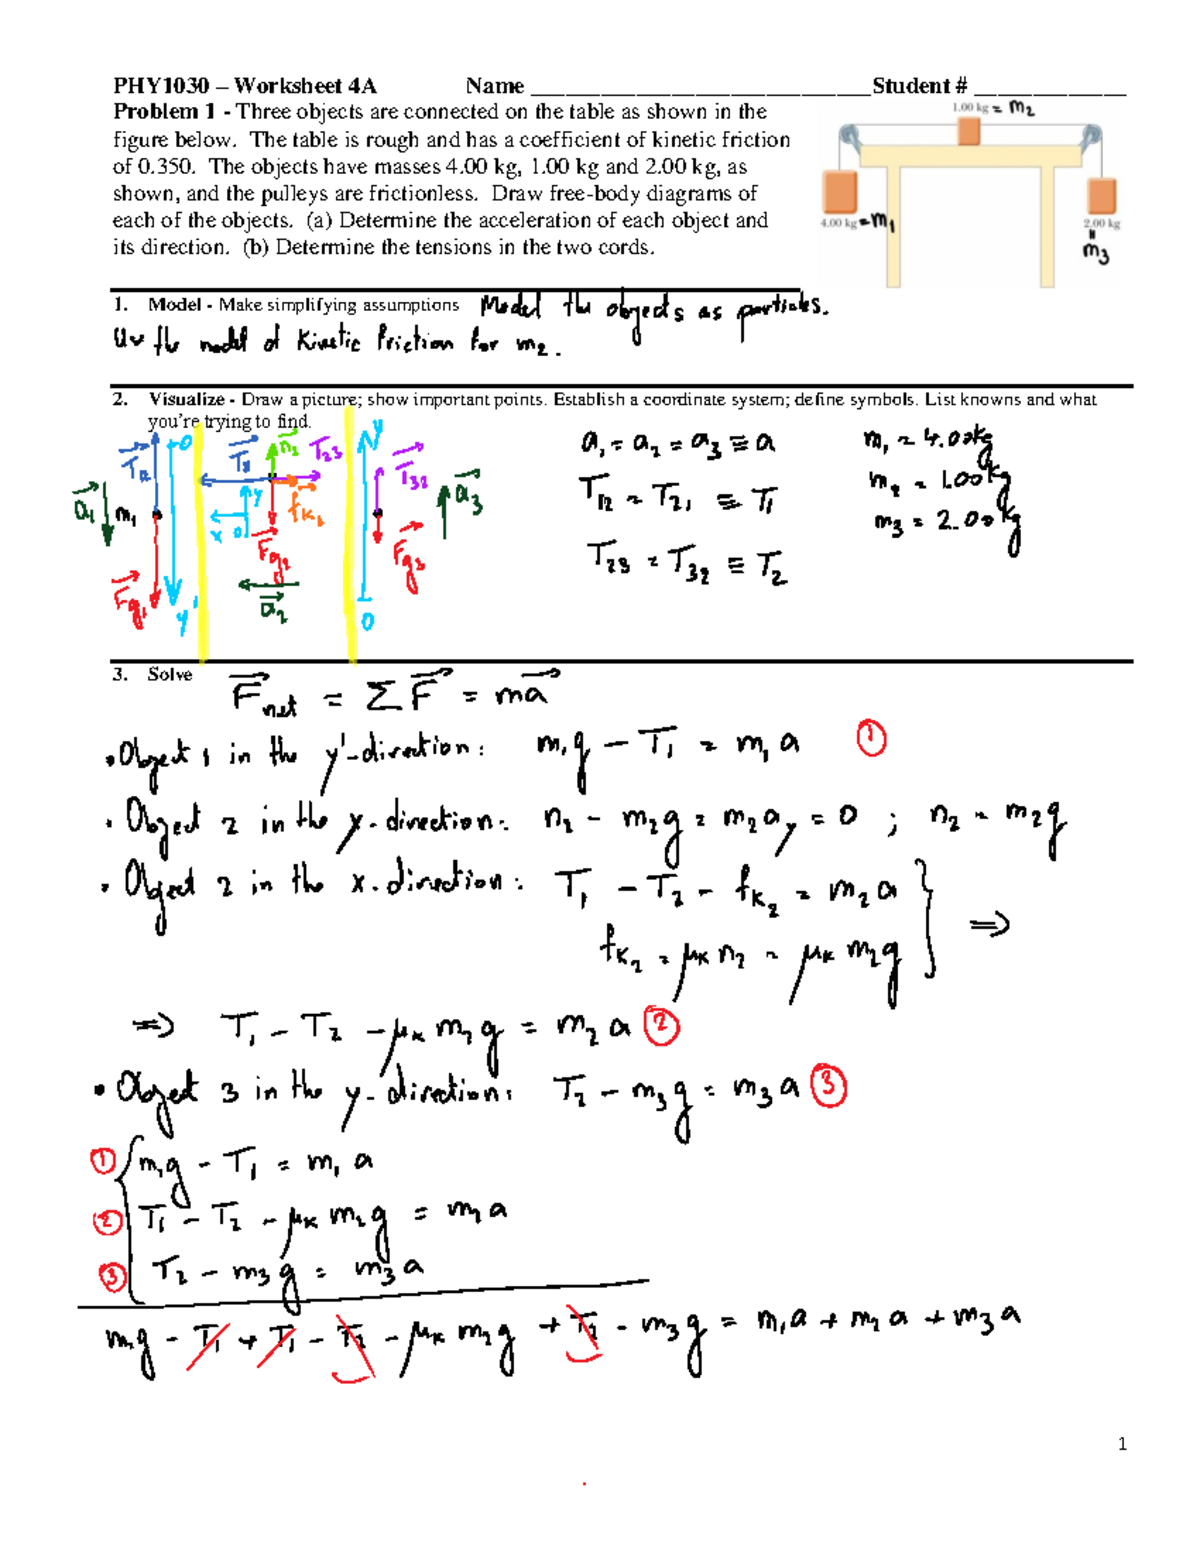 PHY1030 – Worksheet 4A Name ______________________________ Student # ______________
Problem 1 - Three objects are connected on the table as shown in the
figure below. The table is rough and has a coefficient of kinetic friction
of 0.350. The objects have masses 4.00 kg, 1.00 kg and 2.00 kg, as
shown, and the pulleys are frictionless. Draw free-body diagrams of
each of the objects. (a) Determine the acceleration of each object and
its direction. (b) Determine the tensions in the two cords.
1.00 kg = m₂
4.00 kg = m₁
2.00 kg
=
m₃
1. Model - Make simplifying assumptions Model the objects as particles.
Use the model of Kinetic Friction for m₂.
2. Visualize - Draw a picture; show important points. Establish a coordinate system; define symbols. List knowns and what
you're trying to find.
T⃗₁₂ 0
a⃗₁ m₁
F⃗g₁ y'
n⃗₂ T⃗₂₃
y f⃗k₂
x 0
F⃗g₂
a⃗₂
y T⃗₃₂ a⃗₃
F⃗g₃
0
a₁ = a₂ = a₃ ≡ a
T₁₂ = T₂₁ ≡ T₁
T₂₃ = T₃₂ ≡ T₂
m₁ = 4.00kg
m₂ = 1.00kg
m₃ = 2.00kg
3. Solve F⃗net = ΣF⃗ = ma⃗
• Object 1 in the y'-direction: m₁g – T₁ = m₁a ①
• Object 2 in the y-direction: n₂ – m₂g = m₂a_y = 0 ; n₂ = m₂g
• Object 2 in the x-direction: T₁ – T₂ – fk₂ = m₂a
fk₂ = μk n₂ = μk m₂g } ⇒
⇒ T₁ – T₂ – μk m₂g = m₂a ②
• Object 3 in the y-direction: T₂ – m₃g = m₃a ③
① { m₁g – T₁ = m₁a
② T₁ – T₂ – μk m₂g = m₂a
③ T₂ – m₃g = m₃a
m₁g – T₁ + T₁ – T₂ – μk m₂g + T₂ – m₃g = m₁a + m₂a + m₃a
1